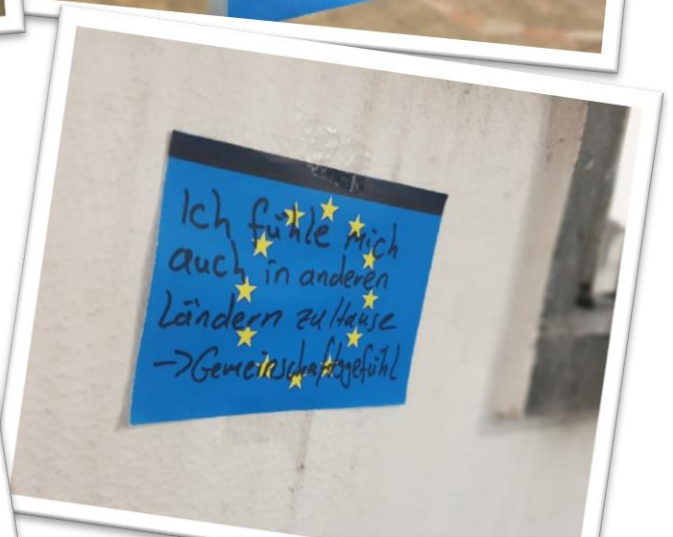 Ich fühle mich
auch in anderen
Ländern zu Hause
->Gemeinschaftsgefühl